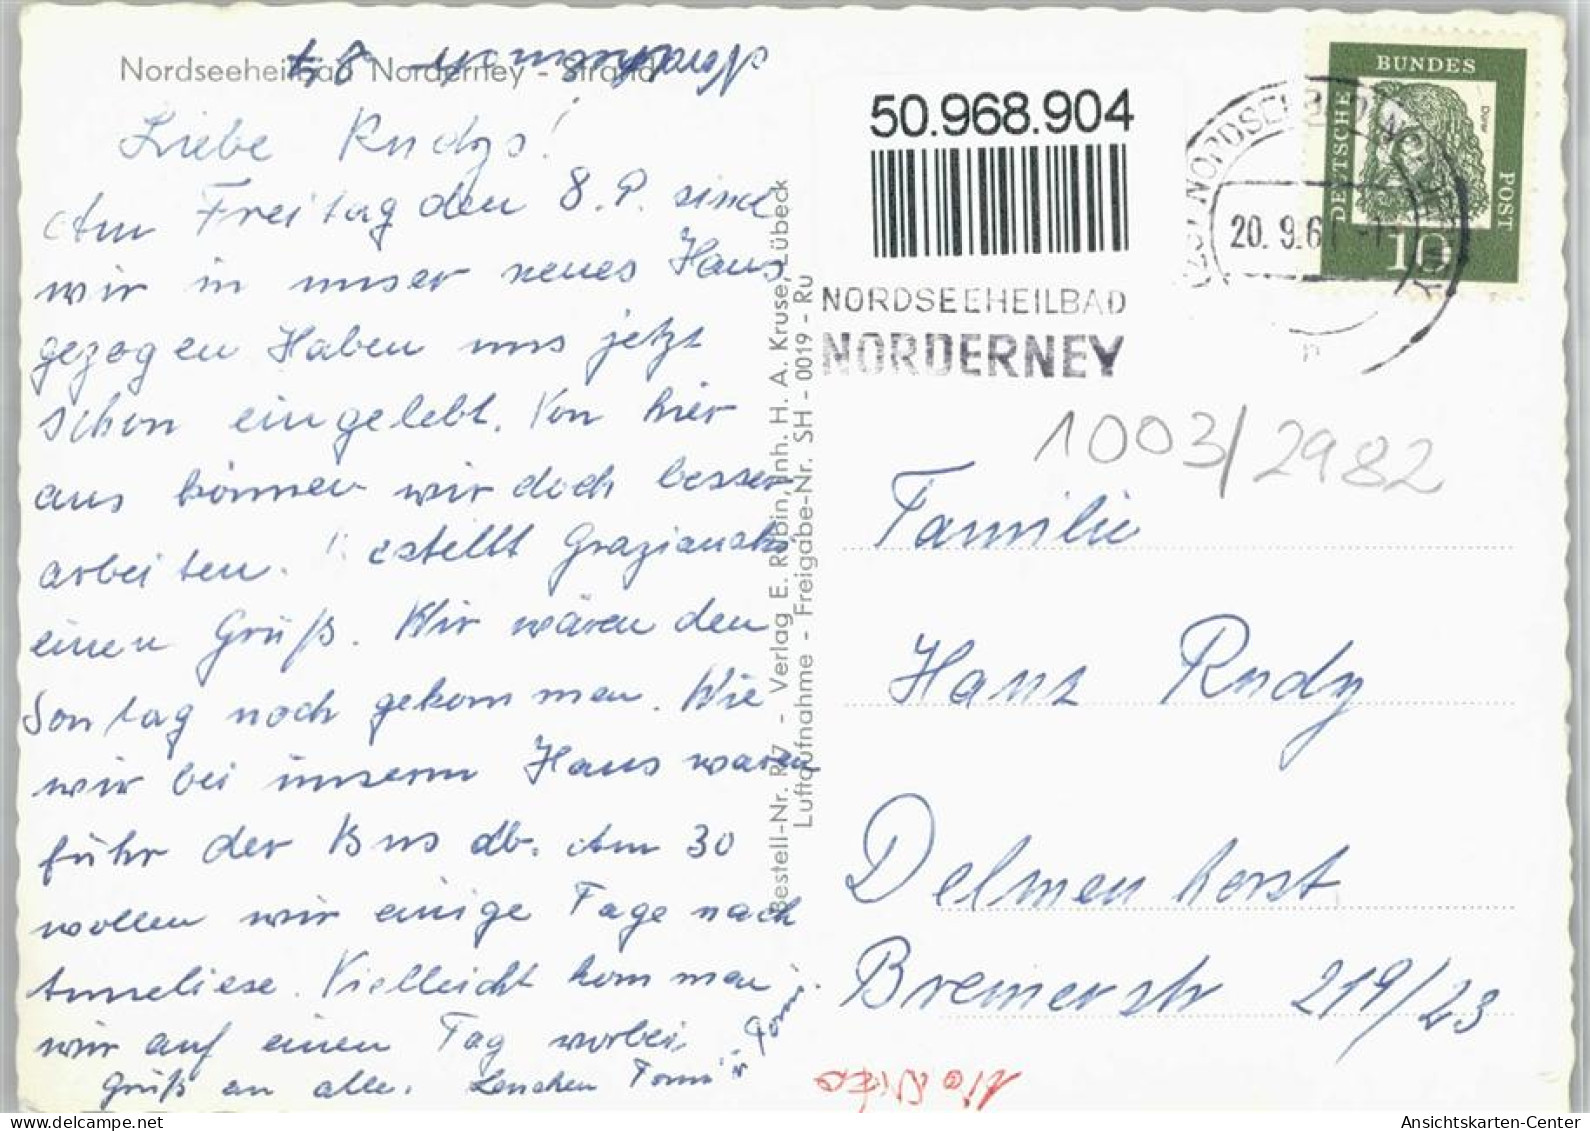 Nordseeheilbad Norderney - Strand
Liebe Rudys!
Am Freitag den 8.9. sind
wir in unser neues Haus
gezogen Haben uns jetzt
schon eingelebt. Von hier
aus können wir doch besser
arbeiten. estellt
einen Gruß. Wir wären den
Sontag noch gekommen. Wie
wir bei unserm Haus waren
fuhr der Bus ab. Am 30
wollen wir einige Tage nach
Anneliese. Vielleicht kommen
wir auf einen Tag vorbei.
Gruß an alle. Lenchen Tomi
Bestell-Nr. R7 - Verlag E. Rubin, Inh. H. A. Kruse, Lübeck
Luftaufnahme - Freigabe-Nr. SH - 0019 - Ru
50.968.904
NORDSEEHEILBAD
NORDERNEY
20. 9.61
DEUTSCHE
BUNDES
POST
Dürer
10
1003/2982
Familie
Hans Rudy
Delmenhorst
Bremerstr 219/23
Ansichtskarten-Center